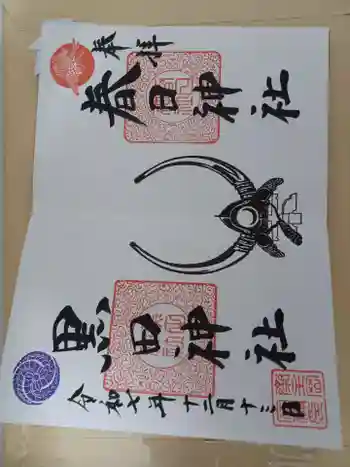 奉拝
春日神社
黒田神社
令和七年十二月十三日